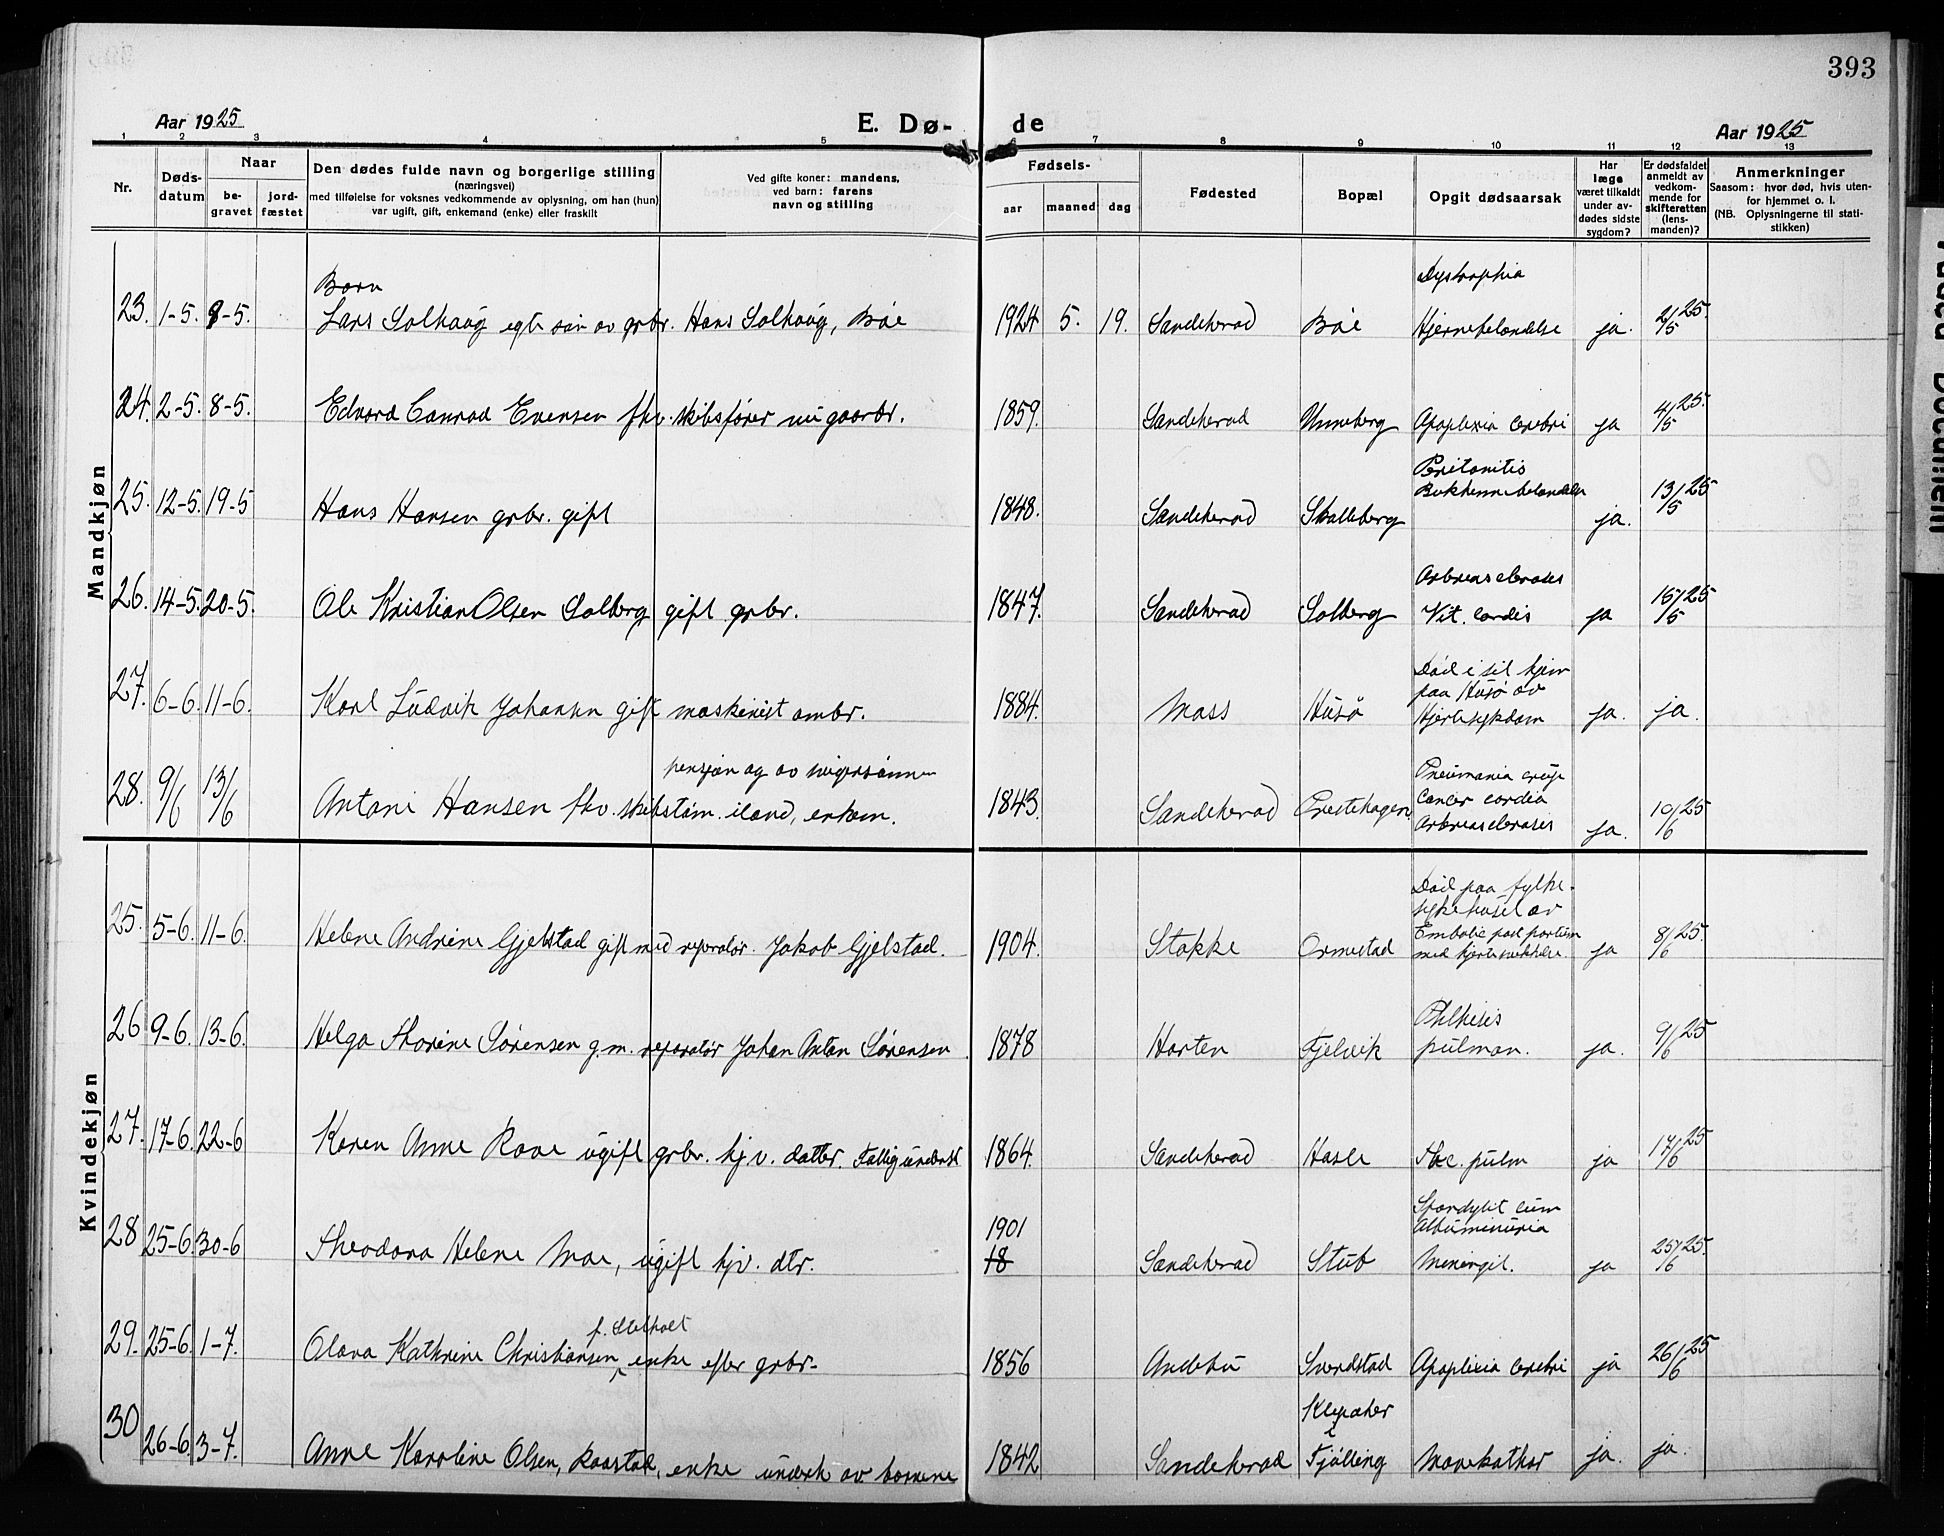 393
Aar 1925 E. Dø- de Aar 1925
1 2 3 4 5 6 7 8 9 10 11 12 13
Nr. Døds-datum Naar be-gravet jord-fæstet Den dødes fulde navn og borgerlige stilling (næringsvei) med tilføielse for voksnes vedkommende av oplysning, om han (hun) var ugift, gift, enkemand (enke) eller fraskilt Ved gifte koner: mandens, ved barn: farens navn og stilling Fødsels- aar maaned dag Fødested Bopæl Opgit dødsaarsak Har læge været tilkaldt under av-dødes sidste sygdom? Er dødsfaldet anmeldt av vedkom-mende for skifteretten (lens-manden)? Anmerkninger Saasom: hvor død, hvis uten-for hjemmet o. l. (NB. Oplysningerne til stati-stikken)
Mandkjøn
Barn Dystrophia
23. 1-5. 8-5. Lars Solhaug egte søn av grbr. Hans Solhaug, Bøe 1924 5. 19. Sandeherad Bøe Hjernebetændelse ja. 2/5 25.
24. 2-5. 8-5. Edvard Conrad Evensen fhv. skibsfører nu gaardbr. 1859. Sandeherad Unneberg Apoplexia cerebri ja 4/5 25.
Peritonitis
Bukhinnebetændelse
25. 12-5. 19-5 Hans Hansen grbr. gift 1848. Sandeherad Skalleberg ja. 13/5 25
26. 14-5. 20-5. Ole Kristian Olsen Solberg gift grbr. 1847. Sandeherad Solberg Vit. cordis ja 15/5 25
Død i sit hjem
paa Husø av
27. 6-6. 11-6. Karl Ludvik Johansen gift maskinist ombr. 1884. Moss Husø Hjertesykdom ja. ja.
pensjon og av svigersønnen Pneumonia crup
Cancer cardia
28. 9/6 13/6 Antoni Hansen fhv. skibstøm. iland, enkem. 1843. Sandeherad Prestehagen ja. 10/6 25
Kvindekjøn
Død paa fylke-
sykehuset av
Embolie post partum
25. 5-6. 11-6. Helene Andrine Gjelstad gift med reperatør. Jakob Gjelstad. 1904. Stokke Ormestad med hjertesvekkelse. ja 8/6 25.
Phthisis
26 9-6. 13-6. Helga Thorine Sørensen g.m. reparatør Johan Anton Sørensen 1878 Horten Fjelvik pulmon. ja. 9/6 25
27. 17-6. 22-6 Karen Anne Rove ugift grbr. hjv. datter. Fattigunderst 1864. Sandeherad Hasle Tbc. pulm ja 17/6 25
1901 Spondylit cum
Albuminuria
28 25-6. 30-6 Theodora Helene Moe, ugift hjv. dtr. 18 Sandeherad Stub Meningit. ja 25/6 25.
29. 25-6. 1-7. Olava Kathrine Christiansen enke efter grbr. 1856 Andebu Sverdstad Apoplexia cerebri ja 26/6 25
Klepaker
30 26-6. 3-7. Anne Karoline Olsen, Raastad, enke underh av børnene 1842 Sandeherad Fjølling Mavekathar ja. ja.